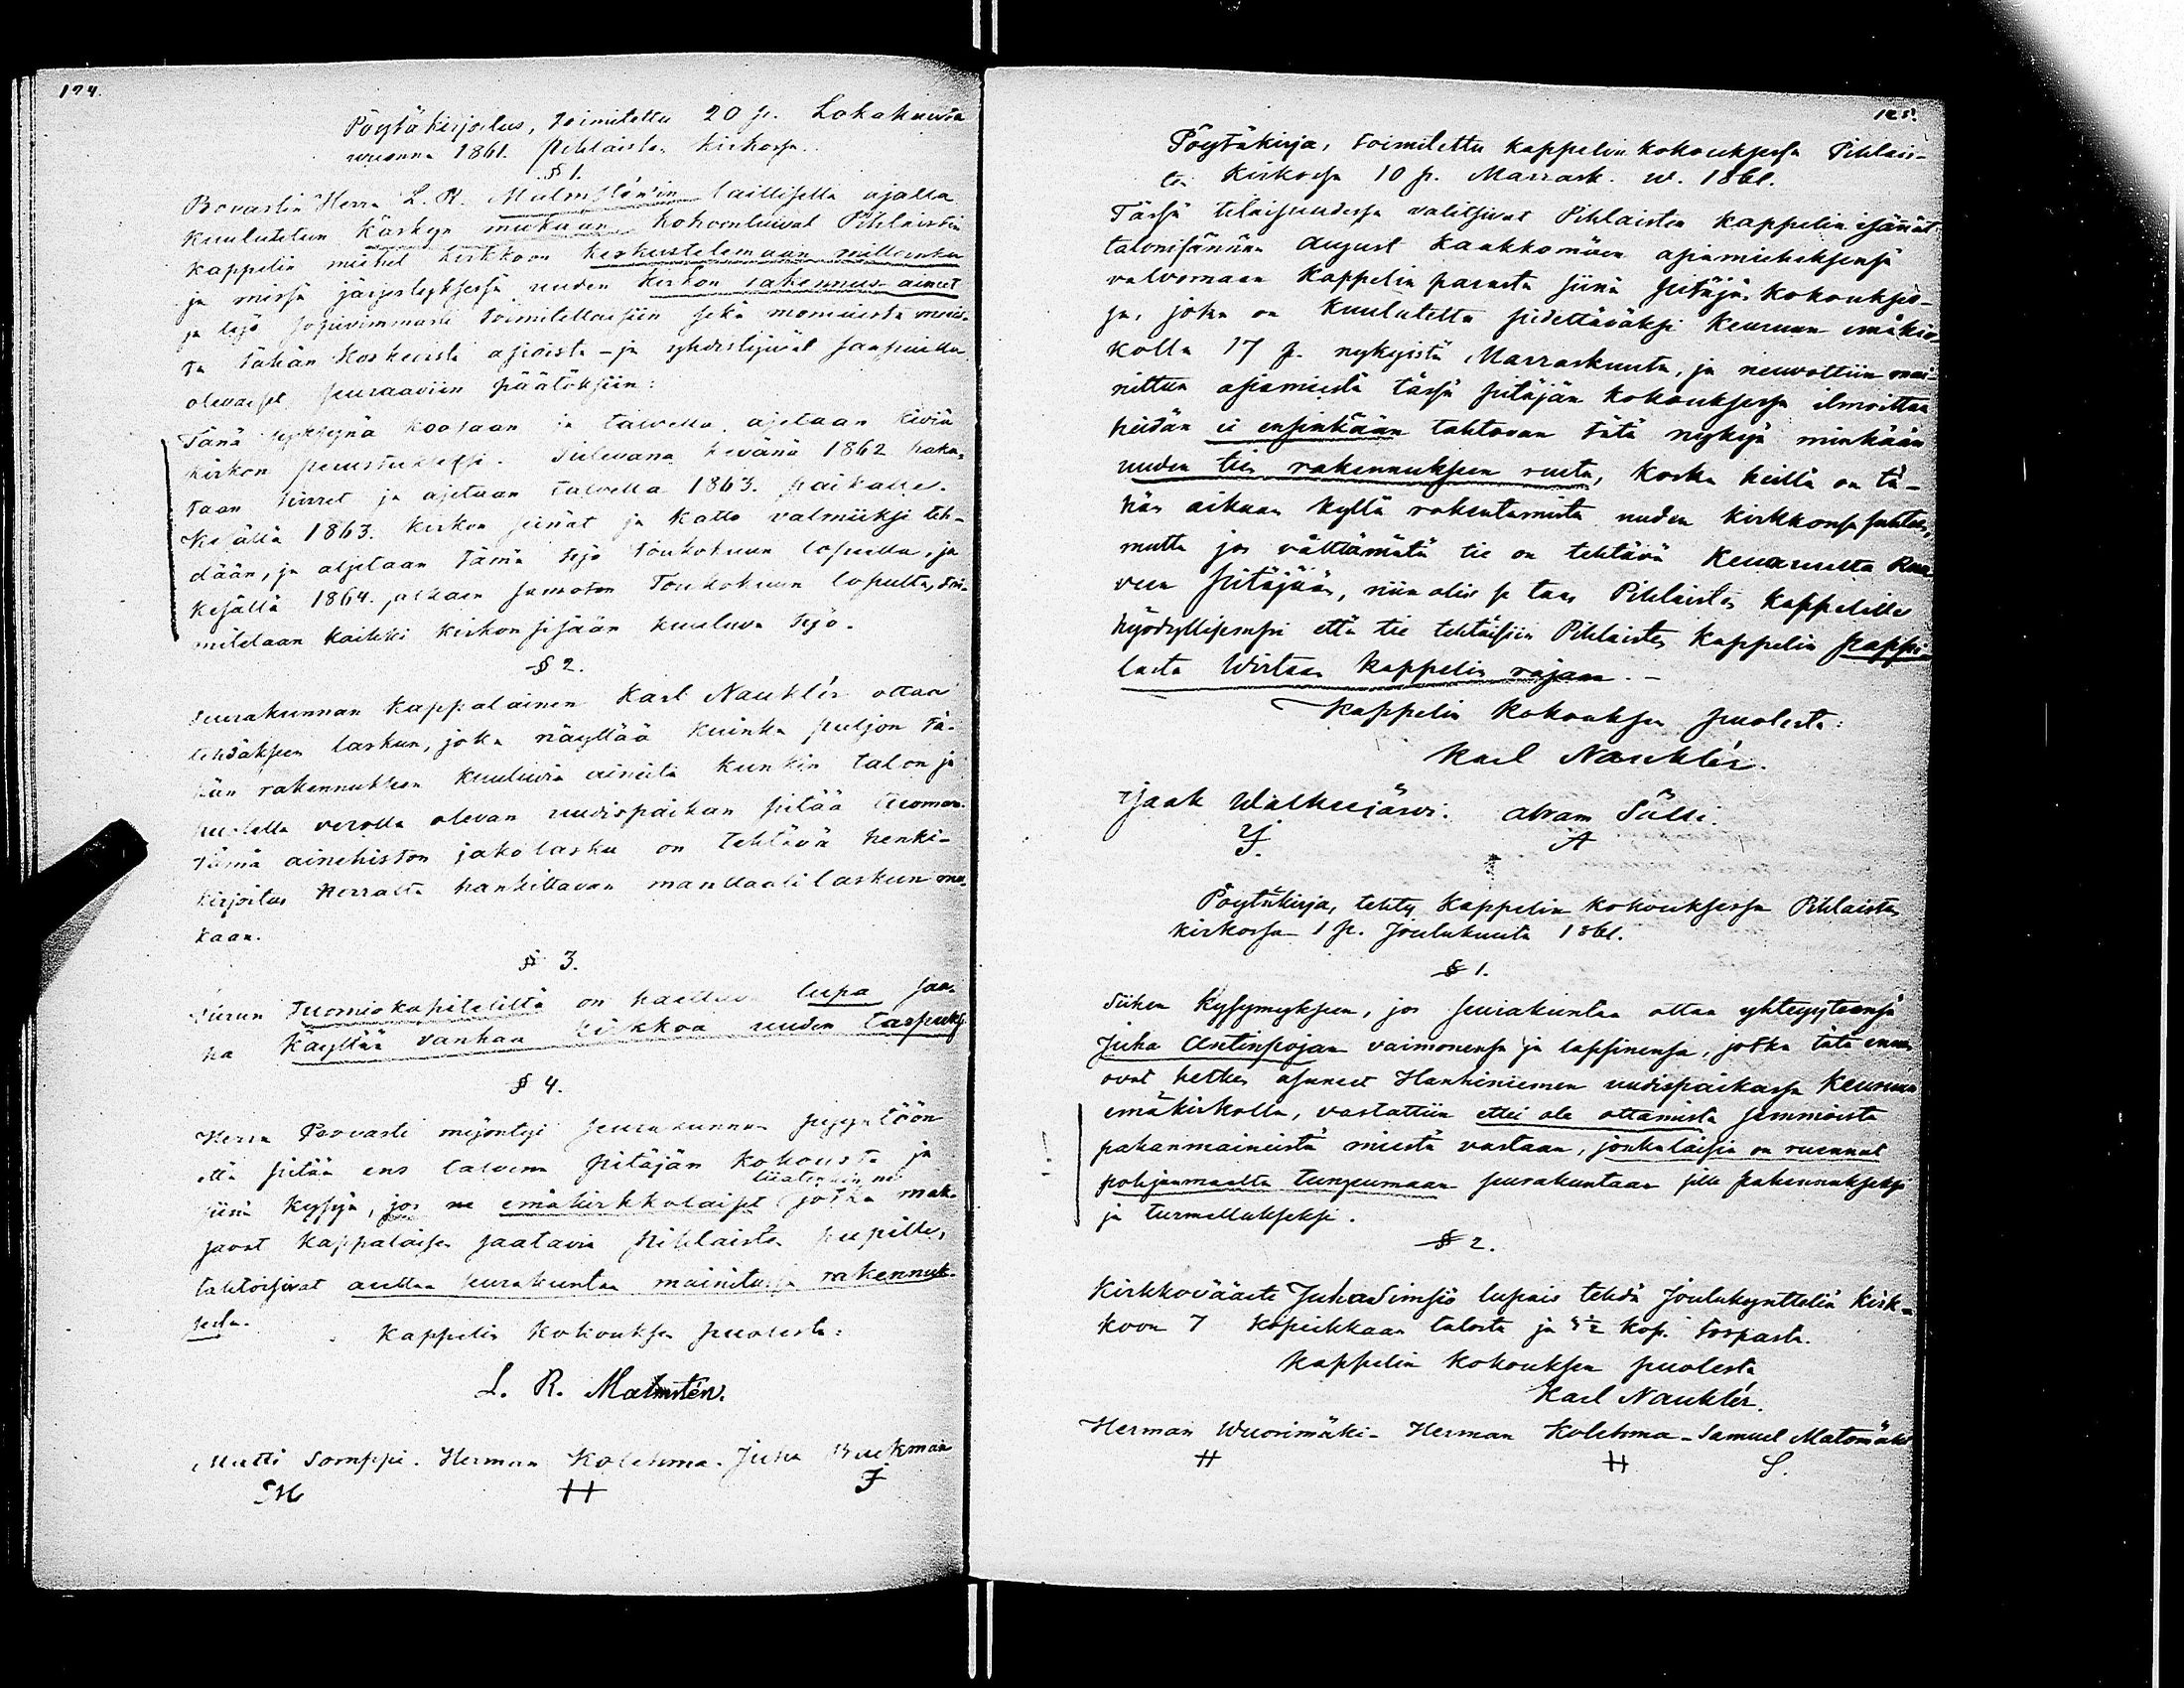 124.
Pöytäkirjoitus, toimitettu 20 p. Lokakuuta
wuonna 1861. Pihlaisten kirkossa.
§ 1.
Provastin Herra L. R. Malmstén'in laillisella ajalla
kuulutetun käskyn mukaan kokoontuivat Pihlaisten
kappelin miehet kirkkoon keskustelemaan milloinka
ja missä järjestyksessä uuden kirkon rakennus aineet
ja työ sopivimmasti toimitettaisiin sekä monuista muis-
ta tähän koskevista asioista - ja yhdistyivät saapuilla
olevaiset seuraaviin päätöksiin:
Tänä syksynä kootaan ja talvella ajetaan kiviä
kirkon perustukseksi. Tulevana kevänä 1862 haka-
taan hirret ja ajetaan talvella 1863. paikalle.
Kesällä 1863. kirkon seinät ja katto valmiiksi teh-
dään, ja aljetaan tämä työ Toukokuun lopulla, ja
kesällä 1864. alkaen samoten Toukokuun lopulta, toi-
mitetaan kaikki kirkon sisään kuuluva työ.
§ 2.
Seurakunnan kappalainen Karl Nauklér ottaa
tehdäksensä laskun, joka näyttää kuinka paljon tä-
hän rakennukseen kuuluvia aineita kunkin talon ja
verolla olevan uudispaikan pitää tuoman.
Tämä ainehiston jakolasku on tehtävä henki-
kirjoitus Herralta hankittavan manttaalilaskun mu-
kaan.
§ 3.
Turun Tuomiokapitelilta on haettava lupa saa-
ha käyttää vanhaa kirkkoa uuden tarpuksi
§ 4.
Herra Provasti myöntyi seurakunnan pyyntöön
että pitää ens talvena pitäjän kokousta ja
siinä kysyä, jos ne emäkirkkolaiset jotka mak-
savat kappalaisen saatavia Pihlaisten papille,
tahtoisivat auttaa seurakuntaa mainitussa rakennuk-
sessa.
Kappelin kokouksen puolesta:
L. R. Malmstén.
Matti Somppi. Herman Kolehma. Juha Buckman
M H J
125.
Pöytäkirja, toimitettu kappelin kokouksessa Pihlais-
ten kirkossa 10 p. Marrask. w. 1861.
Tässä tilaisuudessa valitsivat Pihlaisten kappelin isännät
talonisännän August Kaukkomäen asiamieheksensä
valvomaan kappelin parasta siinä pitäjän kokoukses-
sa, joka on kuulutettu pidettäväksi Keuruun emäkir-
kolla 17 p. nykyistä Marraskuuta, ja neuvottiin mai-
nittua asiamiestä tässä pitäjän kokouksessa ilmoittaa
heidän ei ensinkään tahtovan tätä nykyä minkään
uuden tien rakennuksen ruveta, koska heillä on tä-
hän aikaan kyllä rakentamista uuden kirkkonsa suhteen,
mutta jos välttämätä tie on tehtävä Keuruulta Ruo-
veen pitäjään, niin olis se taas Pihlaisten kappelille
hyödyllisempi että tie tehtäisiin Pihlaisten kappelin pappi-
lasta Wirtain kappelin rajaan. -
Kappelin kokouksen puolesta:
Karl Nauklér.
Isaak Walkeejärvi. Abram Sälli.
J. A
Pöytäkirja, tehty kappelin kokouksessa Pihlaisten
kirkossa 1 p. Joulukuuta 1861.
§ 1.
Siihen kysymykseen, jos seurakuntaa ottaa yhteyyteensä
Juha Antinpojan vaimonensa ja lapsinensa, jotka tätä ennen
ovat hetken asuneet Hankiniemen uudispaikassa Keuruun
emäkirkolla, vastattiin ettei ole ottamista semmoista
pahanmaineista miestä vastaan, jonkalaisia on ruennut
pohjanmaalta tunkeumaan seurakuntaan sille pahennukseksi
ja turmellukseksi.
§ 2.
Kirkkovääarti Juha Simsiö lupais tehdä Joulukynttelin kirk-
koon 7 kopeikkaan talosta ja 3½ kop. torpasta.
Kappelin kokouksen puolesta
Karl Nauklér.
Herman Wuorimäki - Herman Kolehma - Samuel Matomäki
H H S.